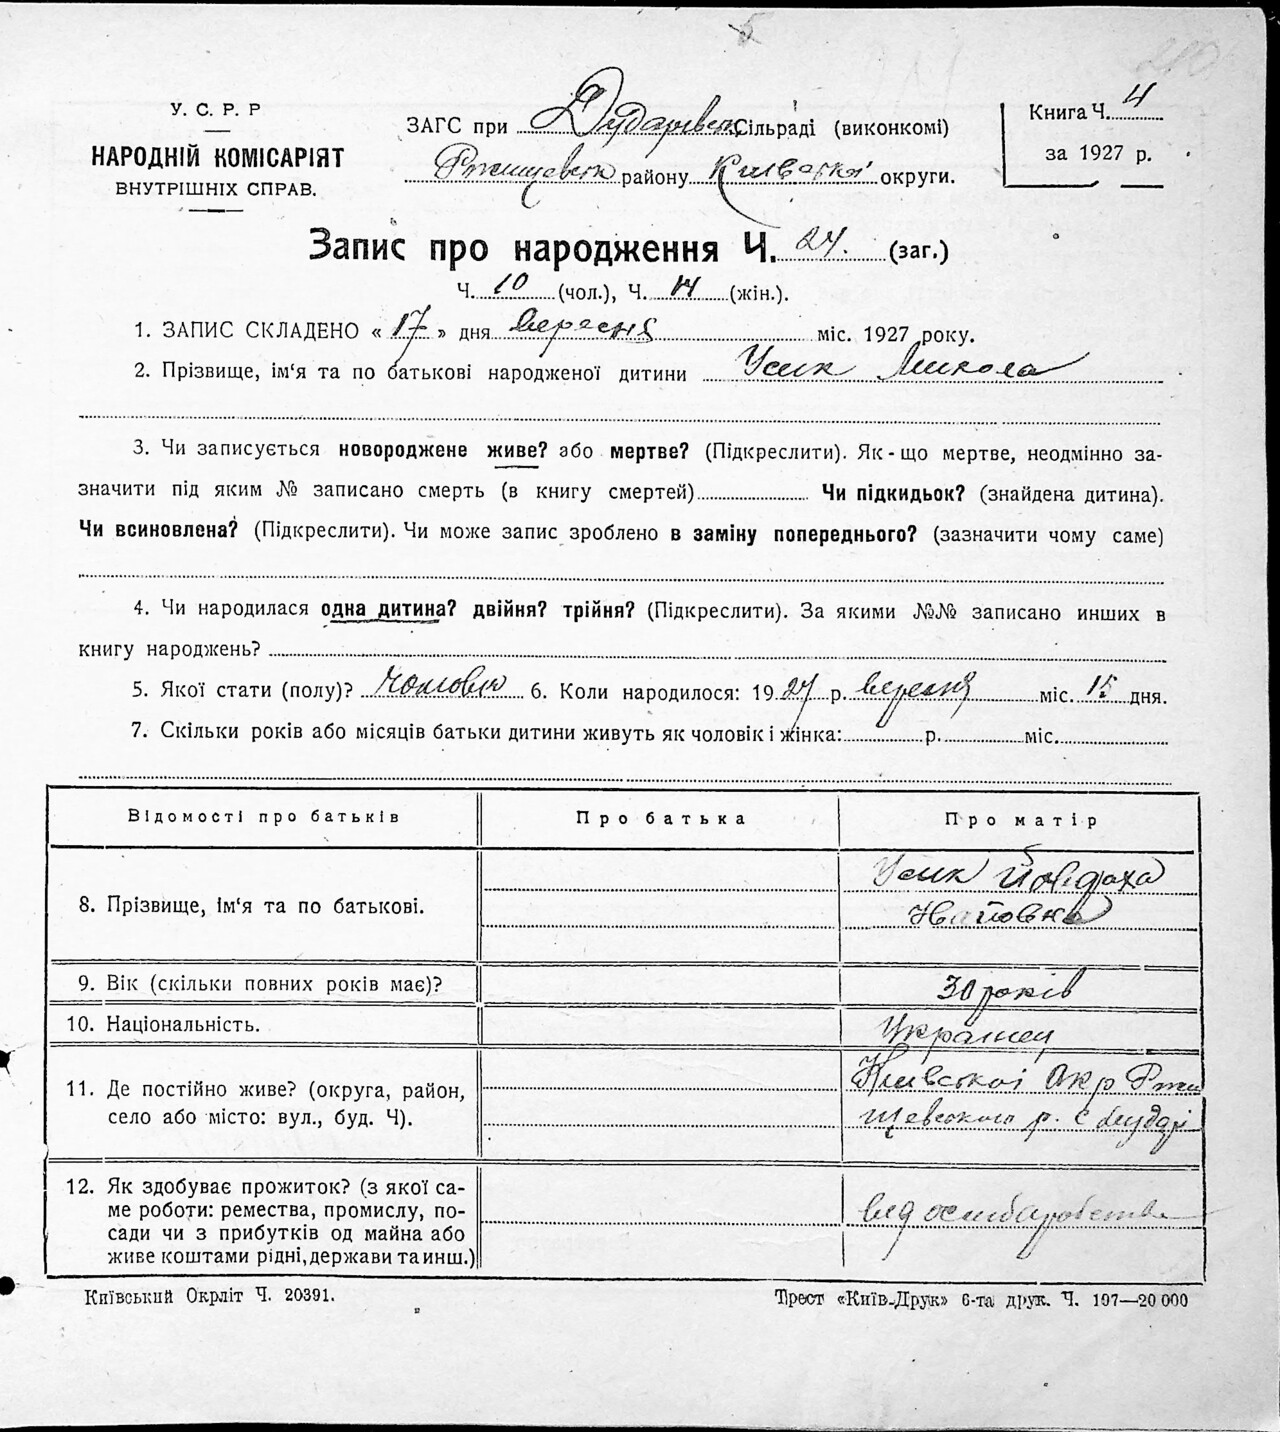 У. С. Р. Р
НАРОДНІЙ КОМІСАРІЯТ
ВНУТРІШНІХ СПРАВ.
ЗАГС при Дударівськ. Сільраді (виконкомі)
Ржищевськ району Київської округи.
Книга Ч. 4
за 1927 р.
Запис про народження Ч. 24. (заг.)
Ч. 10 (чол.), Ч. 14 (жін.).
1. ЗАПИС СКЛАДЕНО « 17 » дня вересня міс. 1927 року.
2. Прізвище, ім'я та по батькові народженої дитини Усик Микола
3. Чи записується новороджене живе? або мертве? (Підкреслити). Як-що мертве, неодмінно за-
значити під яким № записано смерть (в книгу смертей) Чи підкидьок? (знайдена дитина).
Чи всиновлена? (Підкреслити). Чи може запис зроблено в заміну попереднього? (зазначити чому саме)
4. Чи народилася одна дитина? двійня? трійня? (Підкреслити). За якими №№ записано инших в
книгу народжень?
5. Якої стати (полу)? чоловік 6. Коли народилося: 1927 р. вересня міс. 15 дня.
7. Скільки років або місяців батьки дитини живуть як чоловік і жінка: р. міс.
Відомості про батьків Про батька Про матір
Усик Йовдоха
8. Прізвище, ім'я та по батькові.
9. Вік (скільки повних років має)? 30 років
10. Національність. Українец
11. Де постійно живе? (округа, район, Київської Окр Ржи
село або місто: вул., буд. Ч). щевського р. с
12. Як здобуває прожиток? (з якої са-
ме роботи: ремества, промислу, по-
сади чи з прибутків од майна або
живе коштами рідні, держави та инш.)
Київський Окрліт Ч. 20391.
Трест «Київ-Друк» 6-та друк. Ч. 197—20 000